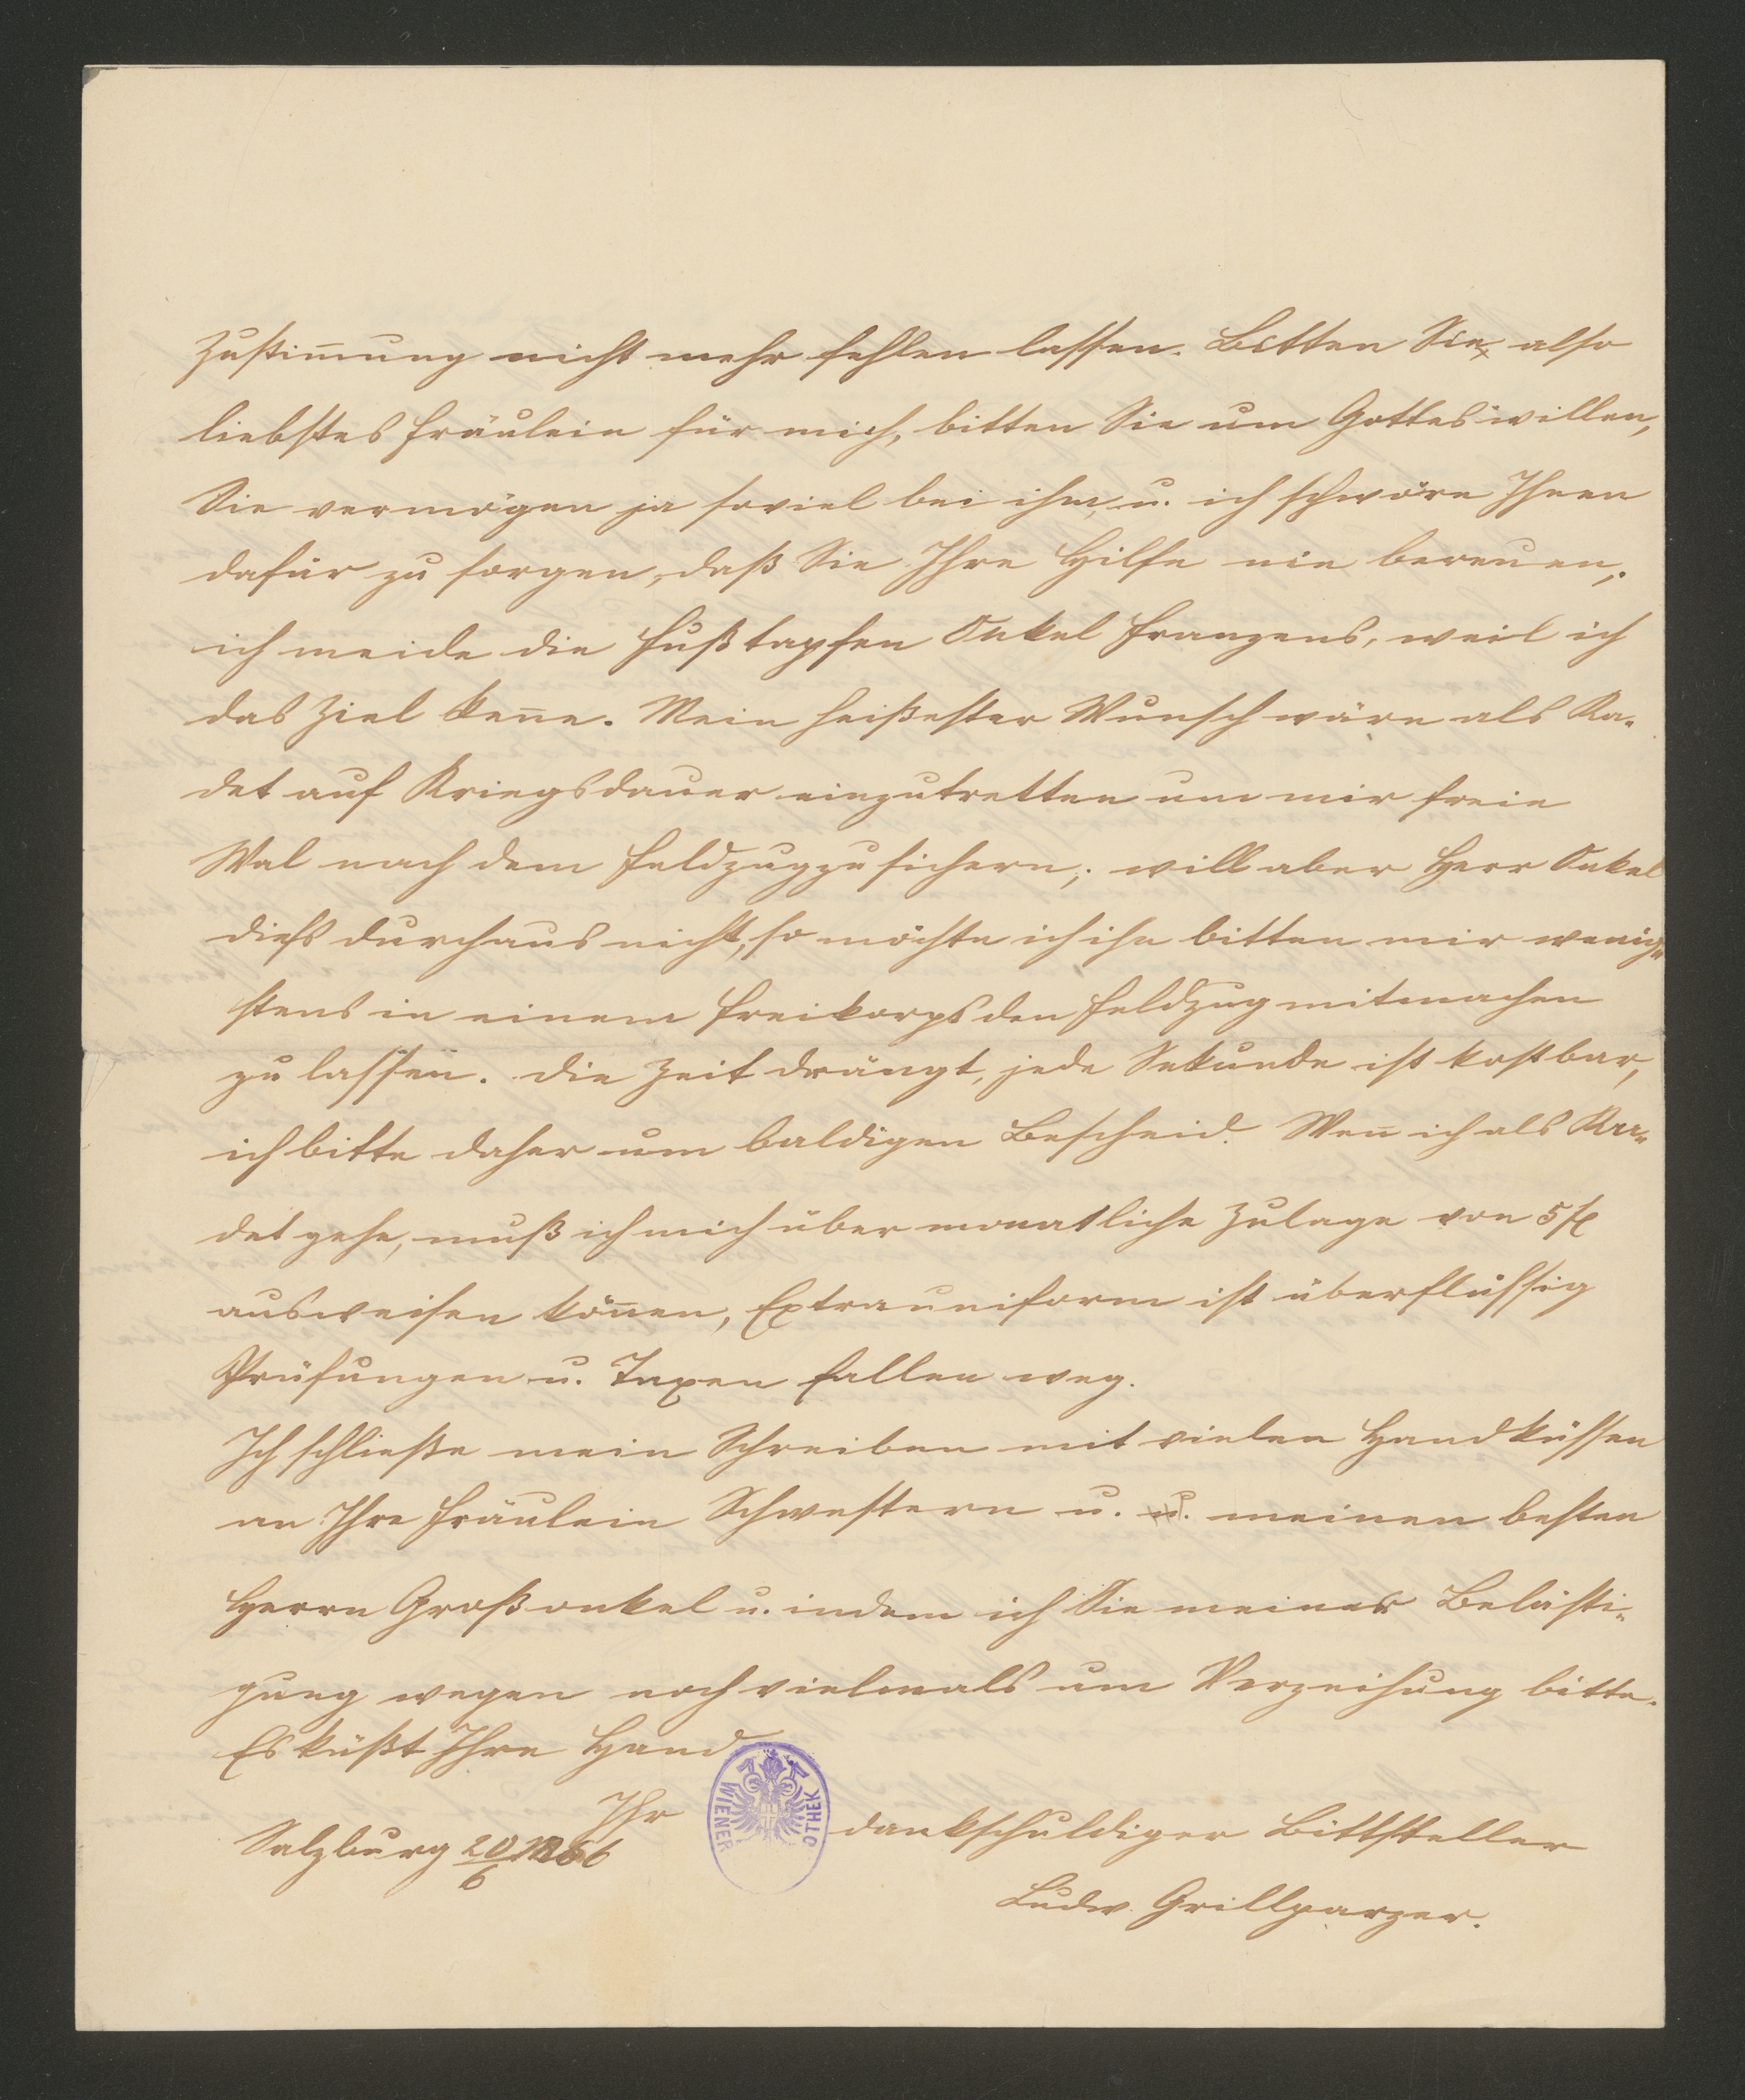 Zustim̅ung nicht mehr fehlen lassen. Bitten Sie also
liebstes Fräulein für mich, bitten Sie um Gotteswillen,
Sie vermögen ja soviel bei ihm u. ich schwöre Ihnen
dafür zu sorgen, daß Sie Ihre Hilfe nie bereuen,
ich meide die Fußtapfen Onkel Franzens, weil ich
das Ziel ken̅e. Mein heißester Wunsch wäre als Ka-
det auf Kriegsdauer einzutretten um mir freie
Wal nach dem Feldzug zu sichern; will aber Herr Onkel
dieß durchaus nicht, so möchte ich ihn bitten mir wenig-
stens in einem Freikorps den Feldzug mitmachen
zu lassen. Die Zeit drängt, jede Sekunde ist kostbar,
ich bitte daher um baldigen Bescheid. Wen̅ ich als Ka-
det gehe, muß ich mich über monatliche Zulage von 5 fl
ausweisen kön̅en, Extrauniform ist überflüssig
Prüfungen u. Taxen fallen weg.
Ich schließe mein Schreiben mit vielen Handküssen
an Ihre Fräulein Schwestern u. u. meinen besten
Herrn Großonkel u. indem ich Sie meiner Belästi-
gung wegen noch vielmals um Verzeihung bitte.
Es küßt Ihre Hand
Ihr dankschuldiger Bittsteller
Salzburg 20/6 1866
Ludw. Grillparzer.
WIENER OTHEK